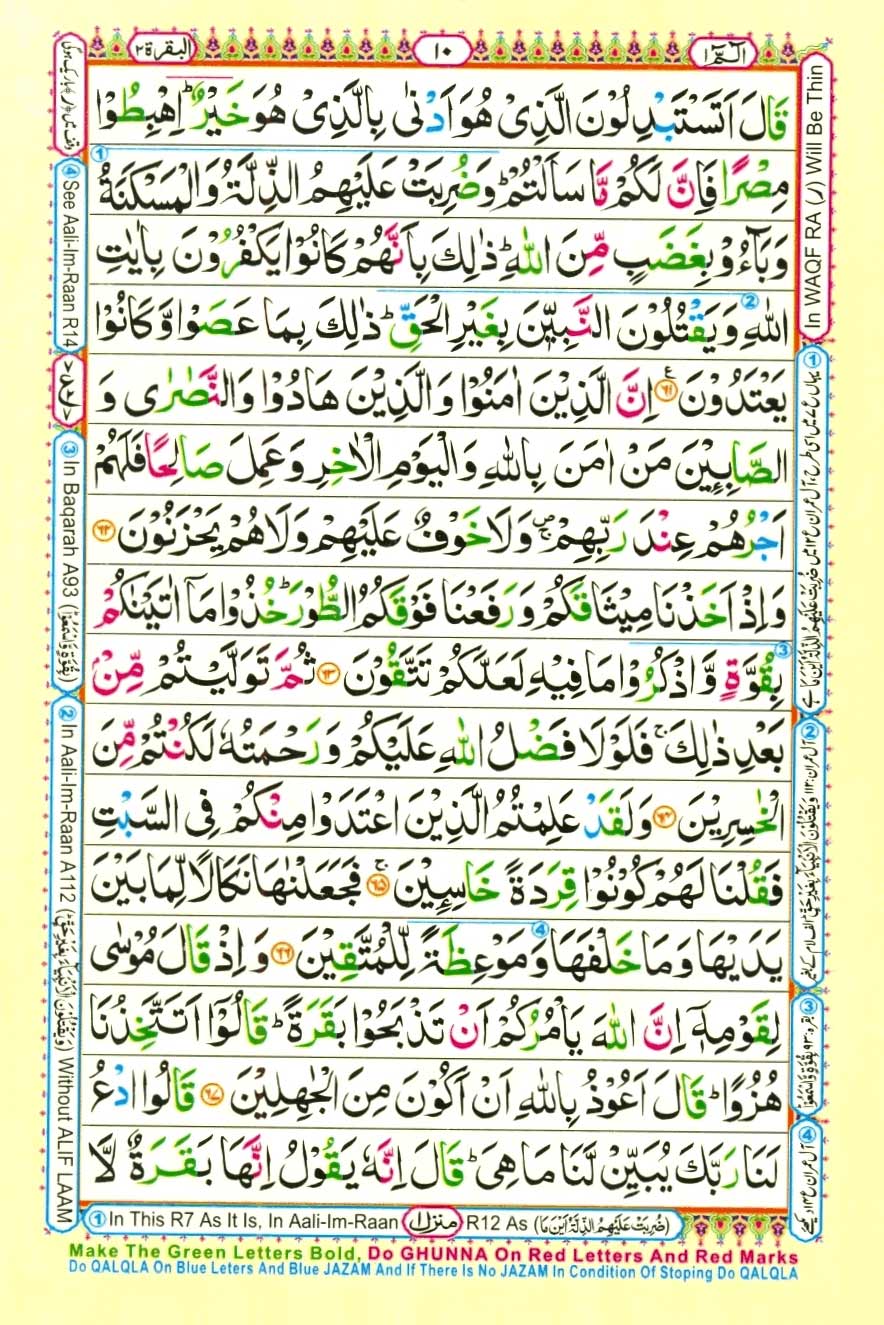 الٓـمّٓ ١
١٠
البقرة ٢
قَالَ اَتَسْتَبْدِلُوْنَ الَّذِیْ هُوَ اَدْنٰی بِالَّذِیْ هُوَ خَیْرٌ ؕ اِهْبِطُوْا
مِصْرًا فَاِنَّ لَكُمْ مَّا سَاَلْتُمْ ؕ وَضُرِبَتْ عَلَیْهِمُ الذِّلَّةُ وَالْمَسْكَنَةُ
وَبَآءُوْ بِغَضَبٍ مِّنَ اللّٰهِ ؕ ذٰلِكَ بِاَنَّهُمْ كَانُوْا یَكْفُرُوْنَ بِاٰیٰتِ
اللّٰهِ وَیَقْتُلُوْنَ النَّبِیّٖنَ بِغَیْرِ الْحَقِّ ؕ ذٰلِكَ بِمَا عَصَوْا وَّكَانُوْا
یَعْتَدُوْنَ ۟ع ٦١ اِنَّ الَّذِیْنَ اٰمَنُوْا وَالَّذِیْنَ هَادُوْا وَالنَّصٰرٰی وَ
الصَّابِـِٕیْنَ مَنْ اٰمَنَ بِاللّٰهِ وَالْیَوْمِ الْاٰخِرِ وَعَمِلَ صَالِحًا فَلَهُمْ
اَجْرُهُمْ عِنْدَ رَبِّهِمْ ۪ۚ وَلَا خَوْفٌ عَلَیْهِمْ وَلَا هُمْ یَحْزَنُوْنَ ٦٢
وَاِذْ اَخَذْنَا مِیْثَاقَكُمْ وَرَفَعْنَا فَوْقَكُمُ الطُّوْرَ ؕ خُذُوْا مَاۤ اٰتَیْنٰكُمْ
بِقُوَّةٍ وَّاذْكُرُوْا مَا فِیْهِ لَعَلَّكُمْ تَتَّقُوْنَ ٦٣ ثُمَّ تَوَلَّیْتُمْ مِّنْۢ
بَعْدِ ذٰلِكَ ۚ فَلَوْلَا فَضْلُ اللّٰهِ عَلَیْكُمْ وَرَحْمَتُهٗ لَكُنْتُمْ مِّنَ
الْخٰسِرِیْنَ ٦٤ وَلَقَدْ عَلِمْتُمُ الَّذِیْنَ اعْتَدَوْا مِنْكُمْ فِی السَّبْتِ
فَقُلْنَا لَهُمْ كُوْنُوْا قِرَدَةً خٰسِـِٕیْنَ ۚ ٦٥ فَجَعَلْنٰهَا نَكَالًا لِّمَا بَیْنَ
یَدَیْهَا وَمَا خَلْفَهَا وَمَوْعِظَةً لِّلْمُتَّقِیْنَ ٦٦ وَاِذْ قَالَ مُوْسٰی
لِقَوْمِهٖۤ اِنَّ اللّٰهَ یَاْمُرُكُمْ اَنْ تَذْبَحُوْا بَقَرَةً ؕ قَالُوْۤا اَتَتَّخِذُنَا
هُزُوًا ؕ قَالَ اَعُوْذُ بِاللّٰهِ اَنْ اَكُوْنَ مِنَ الْجٰهِلِیْنَ ٦٧ قَالُوا ادْعُ
لَنَا رَبَّكَ یُبَیِّنْ لَّنَا مَا هِیَ ؕ قَالَ اِنَّهٗ یَقُوْلُ اِنَّهَا بَقَرَةٌ لَّا
In WAQF RA (ر) Will Be Thin
④ See Aali-Im-Raan R14
③ In Baqarah A93 (بِقُوَّةٍ وَّاسْمَعُوْا)
② In Aali-Im-Raan A112 (وَیَقْتُلُوْنَ الْاَنْۢبِیَآءَ بِغَیْرِ حَقٍّ) Without ALIF LAAM
① In This R7 As It Is, In Aali-Im-Raan منزل ١ R12 As (ضُرِبَتْ عَلَیْهِمُ الذِّلَّةُ اَیْنَ مَا)
Make The Green Letters Bold, Do GHUNNA On Red Letters And Red Marks
Do QALQLA On Blue Leters And Blue JAZAM And If There Is No JAZAM In Condition Of Stoping Do QALQLA